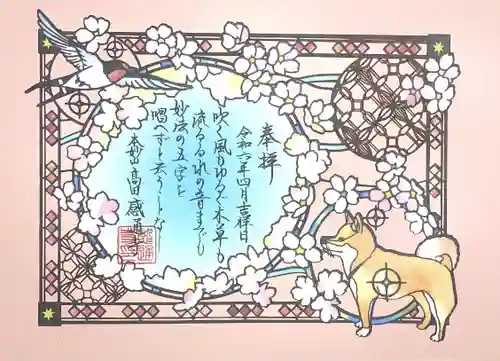 奉拝
令和六年四月吉祥日
吹く風もゆるぐ木草も
流るる水の音までも
妙法の五字を
唱へずと云うことなし
本妙山 高田 感通寺